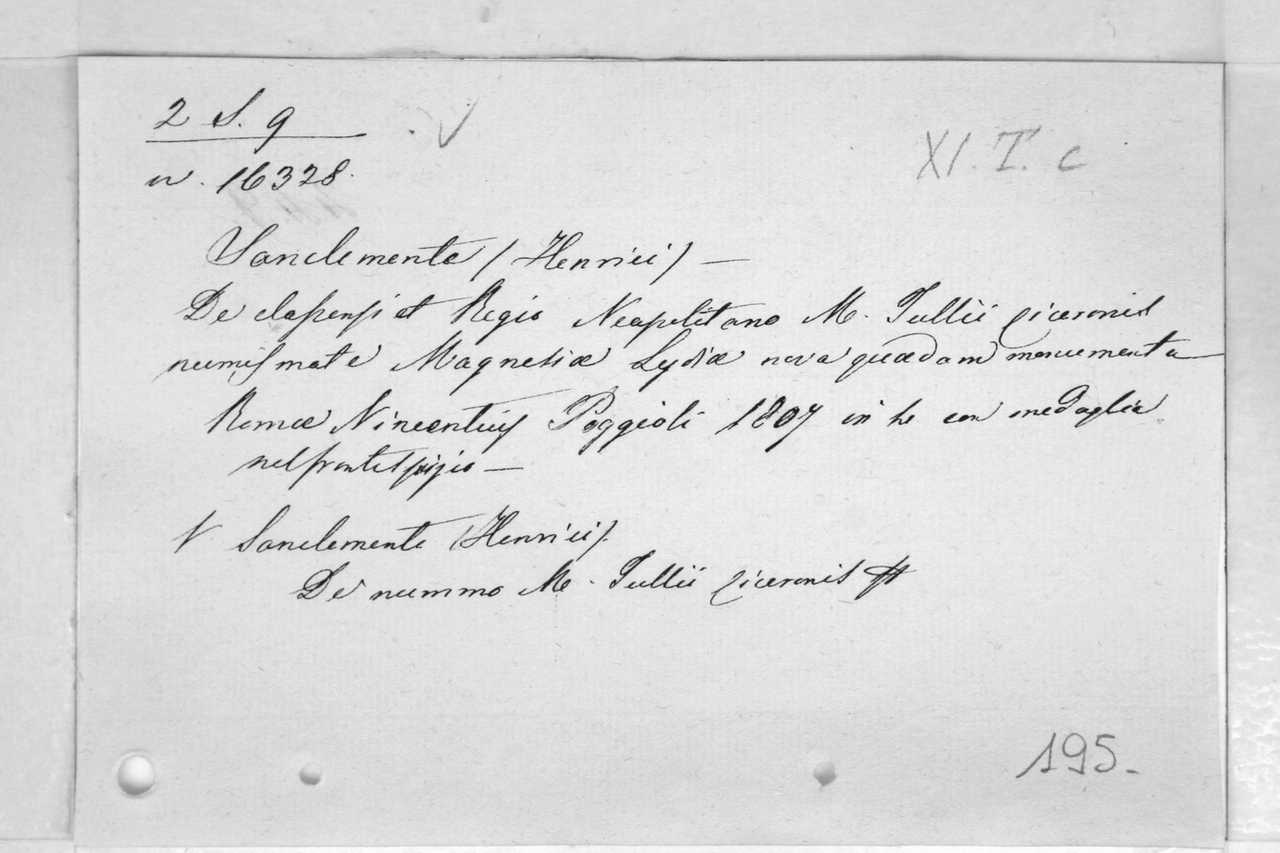 2 S. 9
n. 16328.
XI. T. c
Sanclemente (Henrici) —
De Clasensi et Regio Neapolitano M. Tullii Ciceronis
numismate Magnesiæ Lydiæ nova quædam monumenta
Romæ Vincentius Poggioli 1807 in 4º con medaglia
nel frontespizio —
V Sanclemente (Henrici).
De nummo M. Tullii Ciceronis
195.